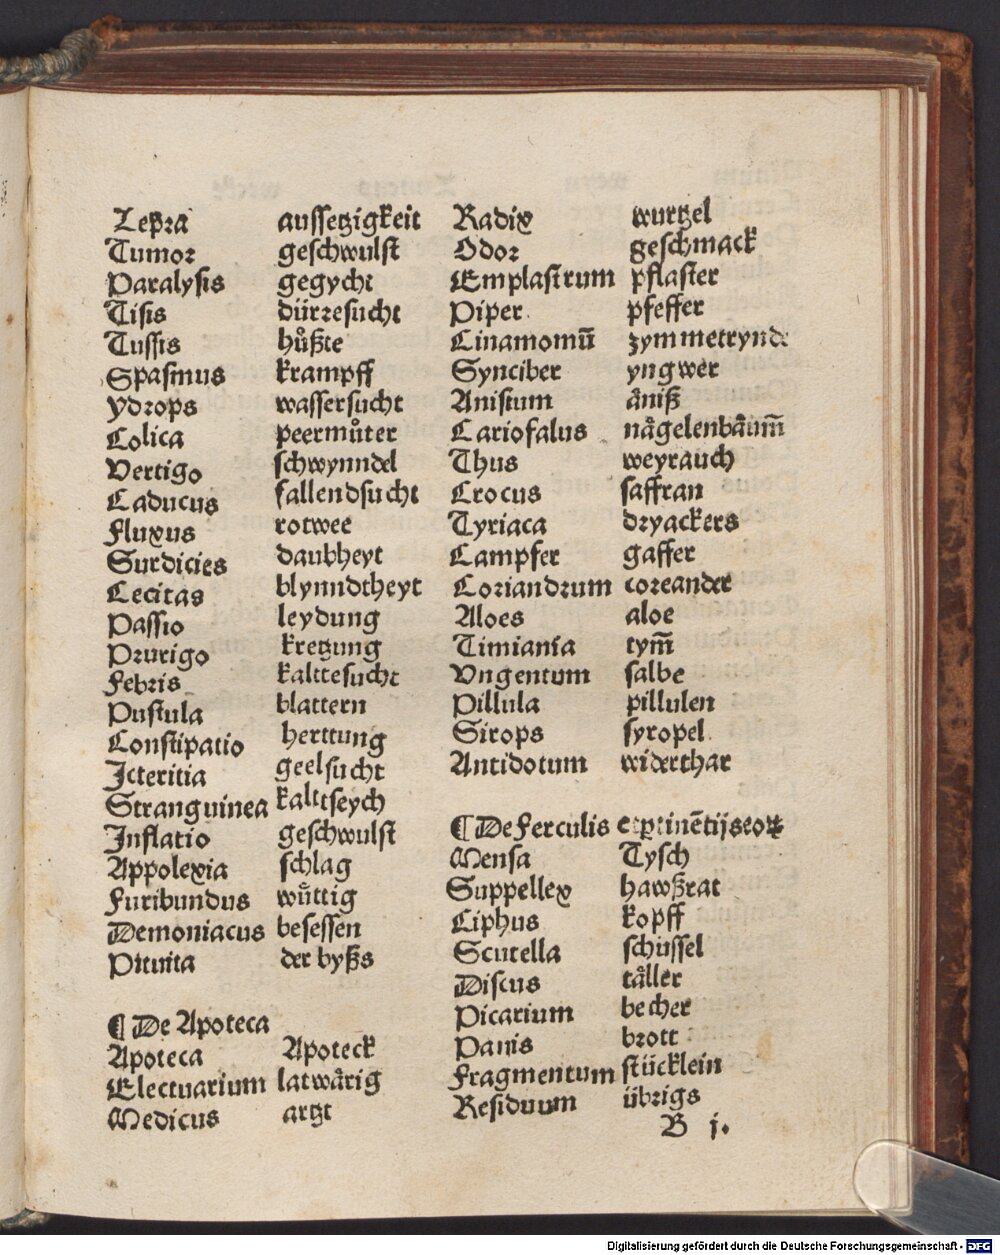 Lepra aussetzigkeit
Tumor geschwulst
Paralysis gegycht
Tisis dürresucht
Tussis hůßte
Spasmus krampff
Ydrops wassersucht
Colica peermůter
Vertigo schwynndel
Caducus fallendsucht
Fluxus rotwee
Surdicies daubheyt
Cecitas blynndtheyt
Passio leydung
Prurigo kretzung
Febris kalttesucht
Pustula blattern
Constipatio herttung
Icteritia geelsucht
Stranguinea kalttseych
Inflatio geschwulst
Appolexia schlag
Furibundus wüttig
Demoniacus besessen
Pituita der byßs
¶ De Apoteca
Apoteca Apoteck
Electuarium latwårig
Medicus artzt
Radix wurtzel
Odor geschmack
Emplastrum pflaster
Piper pfeffer
Cinamomū zymmetrynde
Synciber yngwer
Anisium åniß
Cariofalus någelenbåum̄
Thus weyrauch
Crocus saffran
Tyriaca dryackers
Campfer gaffer
Coriandrum coreander
Aloes aloe
Timiania tym̄
Vngentum salbe
Pillula pillulen
Sirops syropel
Antidotum widerthar
¶ De ferculis et ꝑtinētijs eoꝝ
Mensa Tysch
Suppellex hawßrat
Ciphus kopff
Scutella schüssel
Discus tåller
Picarium becher
Panis brott
Fragmentum stücklein
Residuum übrigs
B j.
Digitalisierung gefördert durch die Deutsche Forschungsgemeinschaft - DFG